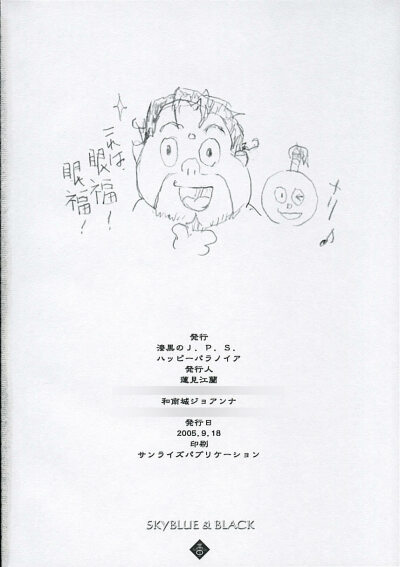 これは、
眼福!
眼福!
メリー♪
発行
漆黒のJ. P. S.
ハッピーパラノイア
発行人
蓮見江蘭
和南城ジョアンナ
発行日
2005.9.18
印刷
サンライズパブリケーション
SKYBLUE & BLACK